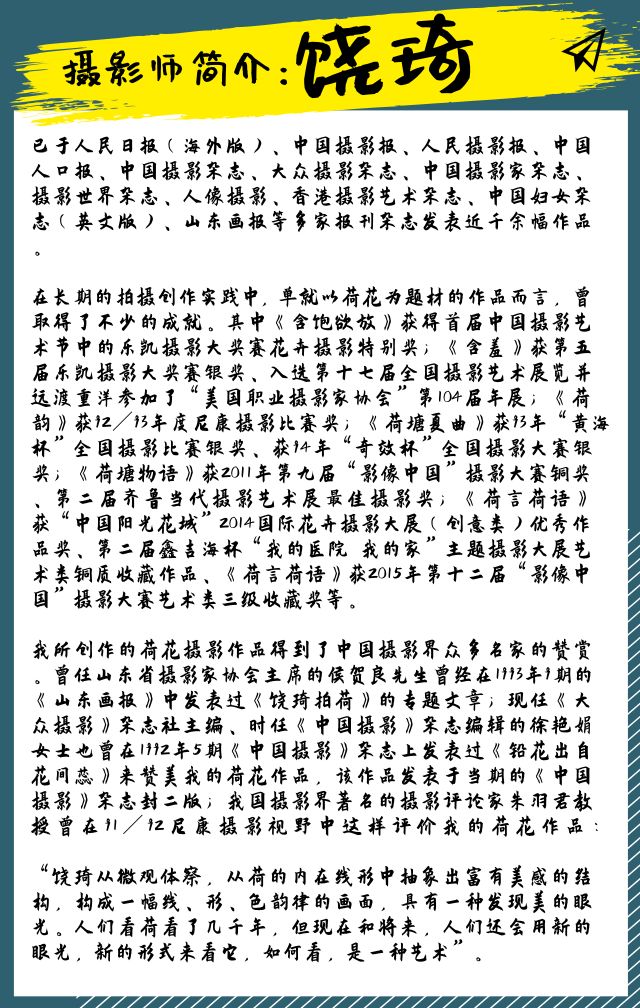 摄影师简介:饶琦
已于人民日报（海外版）、中国摄影报、人民摄影报、中国
人口报、中国摄影杂志、大众摄影杂志、中国摄影家杂志、
摄影世界杂志、人像摄影、香港摄影艺术杂志、中国妇女杂
志（英文版）、山东画报等多家报刊杂志发表近千余幅作品
。
在长期的拍摄创作实践中，单就以荷花为题材的作品而言，曾
取得了不少的成就。其中《含饱欲放》获得首届中国摄影艺
术节中的乐凯摄影大奖赛花卉摄影特别奖；《含羞》获第五
届乐凯摄影大奖赛银奖、入选第十七届全国摄影艺术展览并
远渡重洋参加了“美国职业摄影家协会”第104届年展；《荷
韵》获92／93年度尼康摄影比赛奖；《荷塘夏曲》获93年“黄海
杯”全国摄影比赛银奖、获94年“奇效杯”全国摄影大赛银
奖；《荷塘物语》获2011年第九届“影像中国”摄影大赛铜奖
、第二届齐鲁当代摄影艺术展最佳摄影奖；《荷言荷语》
获“中国阳光花城”2014国际花卉摄影大展（创意类）优秀作
品奖、第二届鑫吉海杯“我的医院 我的家”主题摄影大展艺
术类铜质收藏作品、《荷言荷语》获2015年第十二届“影像中
国”摄影大赛艺术类三级收藏奖等。
我所创作的荷花摄影作品得到了中国摄影界众多名家的赞赏
。曾任山东省摄影家协会主席的侯贺良先生曾经在1993年9期的
《山东画报》中发表过《饶琦拍荷》的专题文章；现任《大
众摄影》杂志社主编、时任《中国摄影》杂志编辑的徐艳娟
女士也曾在1992年5期《中国摄影》杂志上发表过《铅花出自
花间蕊》来赞美我的荷花作品，该作品发表于当期的《中国
摄影》杂志封二版；我国摄影界著名的摄影评论家朱羽君教
授曾在91／92尼康摄影视野中这样评价我的荷花作品：
“饶琦从微观体察，从荷的内在线形中抽象出富有美感的结
构，构成一幅线、形、色韵律的画面，具有一种发现美的眼
光。人们看荷看了几千年，但现在和将来，人们还会用新的
眼光，新的形式来看它，如何看，是一种艺术”。